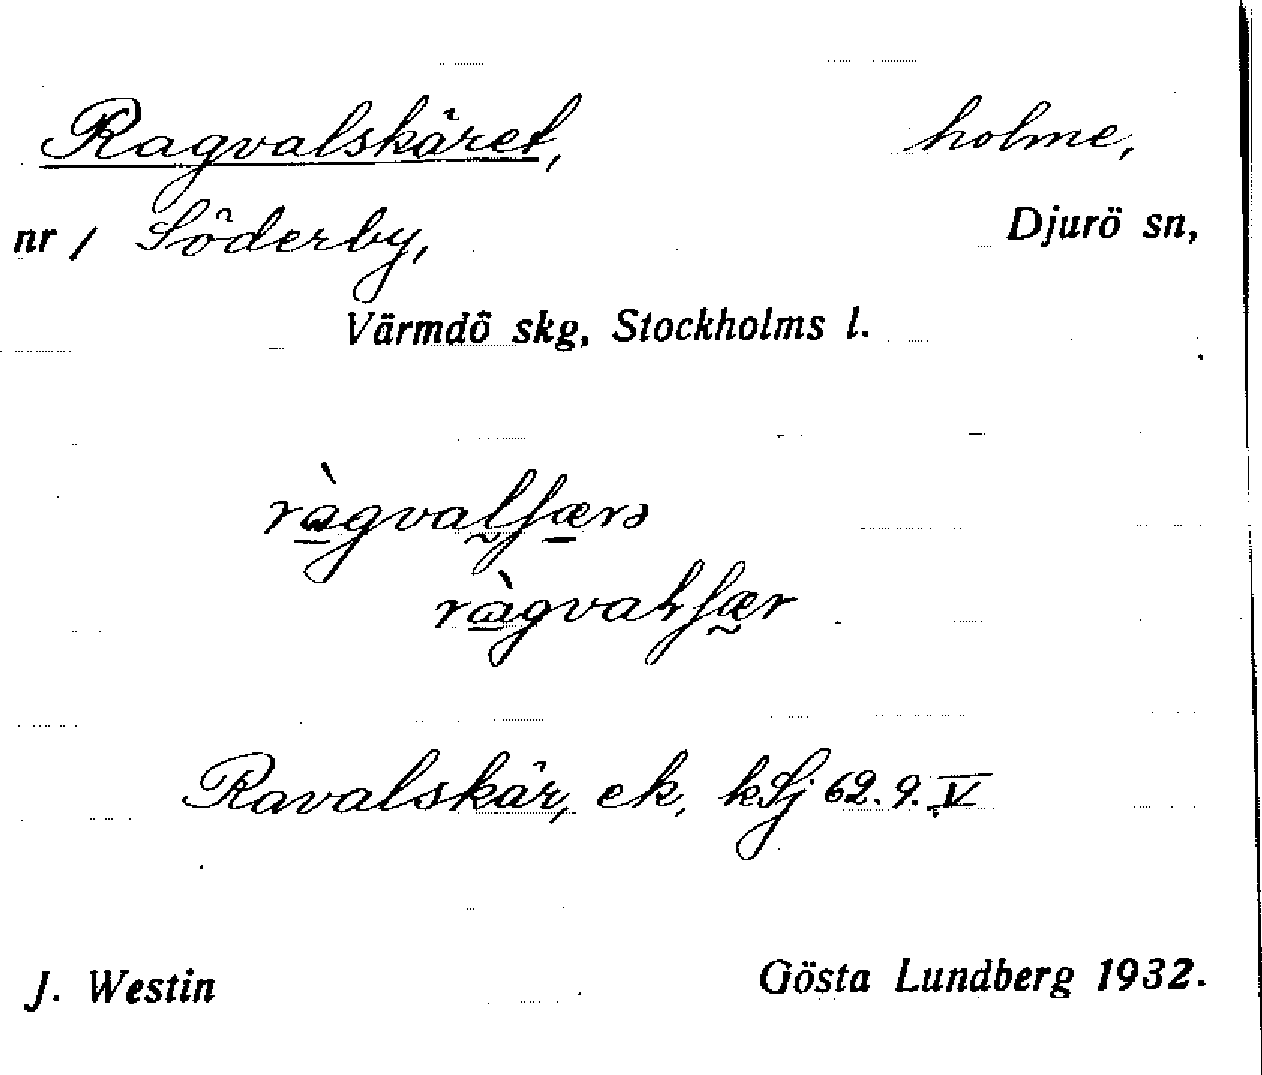 Ragvalskäret, holme,
nr 1 Söderby, Djurö sn,
Värmdö skg, Stockholms l.
Ravalskär, ek, kSj 62.9.V
J. Westin Gösta Lundberg 1932.